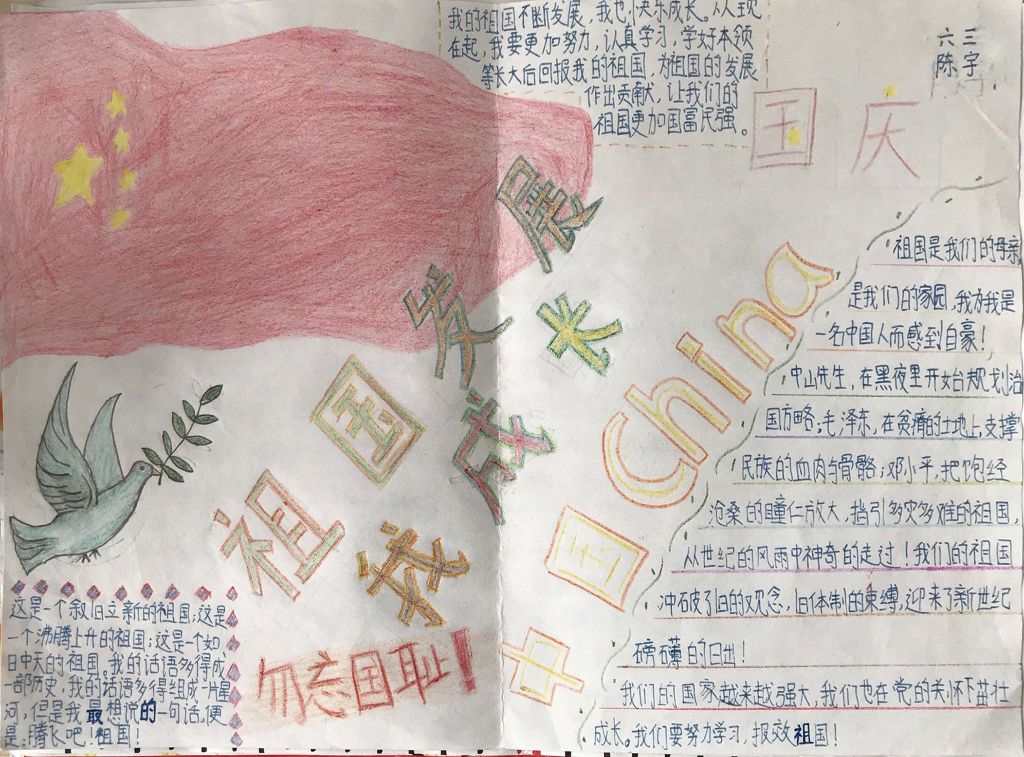 我的祖国不断发展，我也快乐成长。从现
在起，我要更加努力，认真学习，学好本领
等长大后回报我的祖国，为祖国的发展
作出贡献，让我们的
祖国更加国富民强。
六三
陈宇
国庆
祖国发展
我成长
中国China
勿忘国耻！
祖国是我们的母亲
是我们的家园，我为我是
一名中国人而感到自豪！
中山先生，在黑夜里开始规划治
国方略；毛泽东，在贫瘠的土地上支撑
民族的血肉与骨骼；邓小平，把饱经
沧桑的瞳仁放大，指引多灾多难的祖国，
从世纪的风雨中神奇的走过！我们的祖国
冲破了旧的观念，旧体制的束缚，迎来了新世纪
磅礴的日出！
我们的国家越来越强大，我们也在党的关怀下茁壮
成长。我们要努力学习，报效祖国！
这是一个叙旧立新的祖国；这是
一个沸腾上升的祖国；这是一个如
日中天的祖国。我的话语多得成
一部历史，我的话语多得组成一片星
河，但是我最想说的一句话，便
是：腾飞吧！祖国！